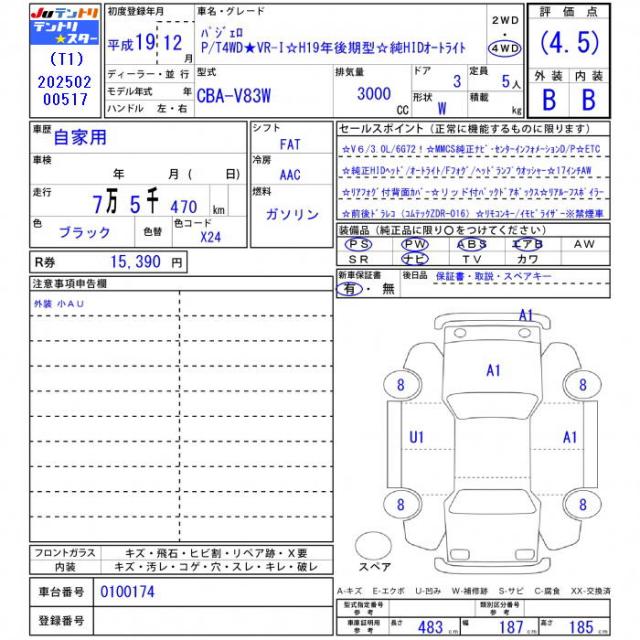 JUテントリ
テントリ
★スター
(T1)
202502
00517
初度登録年月
平成19年12月
ディーラー・並 行
モデル年式 年
ハンドル 左・右
車名・グレード
パジェロ
P/T4WD★VR-I☆H19年後期型☆純HIDオートライト
2WD
・
4WD
型式
CBA-V83W
排気量
3000 CC
ドア
3
形状
W
定員
5人
積載
kg
評価点
(4.5)
外装 内装
B B
車歴
自家用
車検
年 月( 日)
走行
7万5千470 km
色
ブラック
色替
色コード
X24
シフト
FAT
冷房
AAC
燃料
ガソリン
R券 15,390 円
セールスポイント(正常に機能するものに限ります)
☆V6/3.0L/6G72！☆MMCS純正ナビ・センターインフォメーションD/P☆ETC
☆純正HIDヘッド/オートライト/Fフォグ/ヘッドランプウオッシャー☆17インチAW
☆リアフォグ付背面カバー☆リッド付バックドアボックス☆リアルーフスポイラー
☆前後ドラレコ（コムテックZDR-016）☆リモコンキー/イモビライザー※禁煙車
装備品(純正品に限り〇をつけてください)
PS PW ABS エアB AW
SR ナビ TV カワ
新車保証書
有・無
後日品 保証書・取説・スペアキー
注意事項申告欄
外装 小AU
A1
A1
8 8
U1 A1
8 8
スペア
フロントガラス キズ・飛石・ヒビ割・リペア跡・X要
内装 キズ・汚レ・コゲ・穴・スレ・キレ・破レ
車台番号 0100174
登録番号
A-キズ E-エクボ U-凹み W-補修跡 S-サビ C-腐食 XX-交換済
型式指定番号
参考
類別区分番号
参考
車庫証明用
参考
長さ 483 cm 幅 187 cm 高さ 185 cm